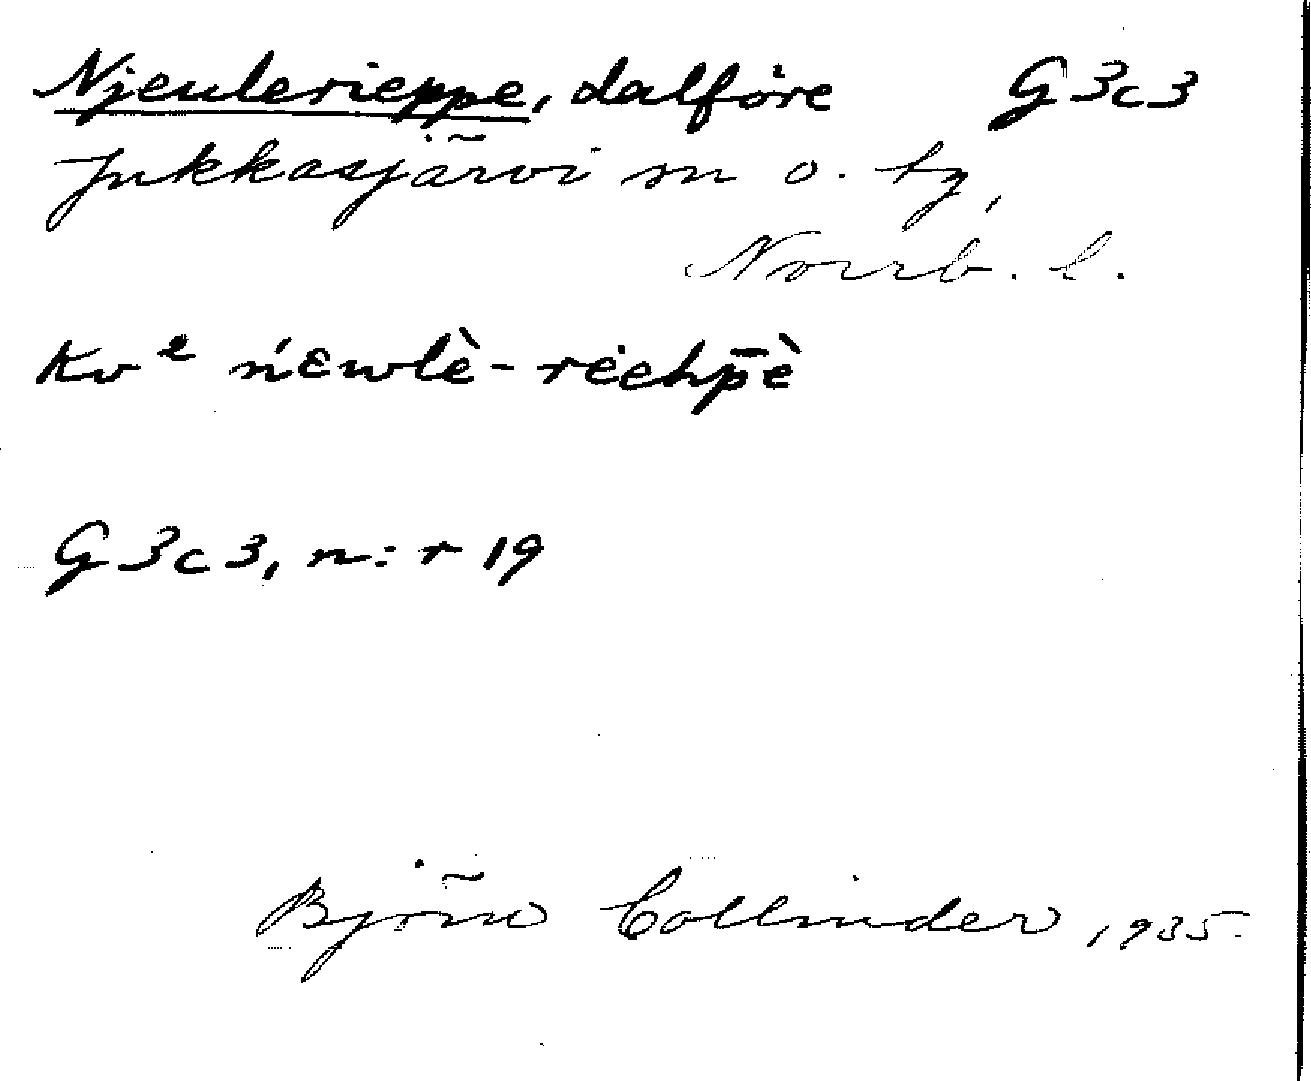 Njeulerieppe, dalföre G3c3
Jukkasjärvi sn o. tg,
Norrb. l.
Kv² ńɛwlè-rėehp̄è
G3c3, n:r 19
Björn Collinder 1935.